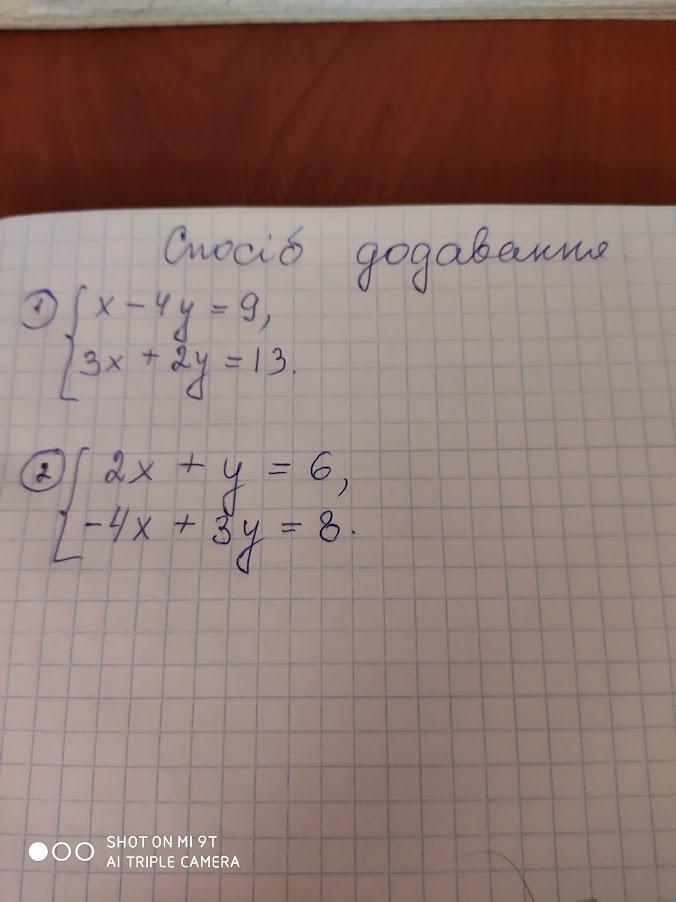 Спосіб додавання
1 { x - 4y = 9,
3x + 2y = 13.
2 { 2x + y = 6,
-4x + 3y = 8.
SHOT ON MI 9T
AI TRIPLE CAMERA